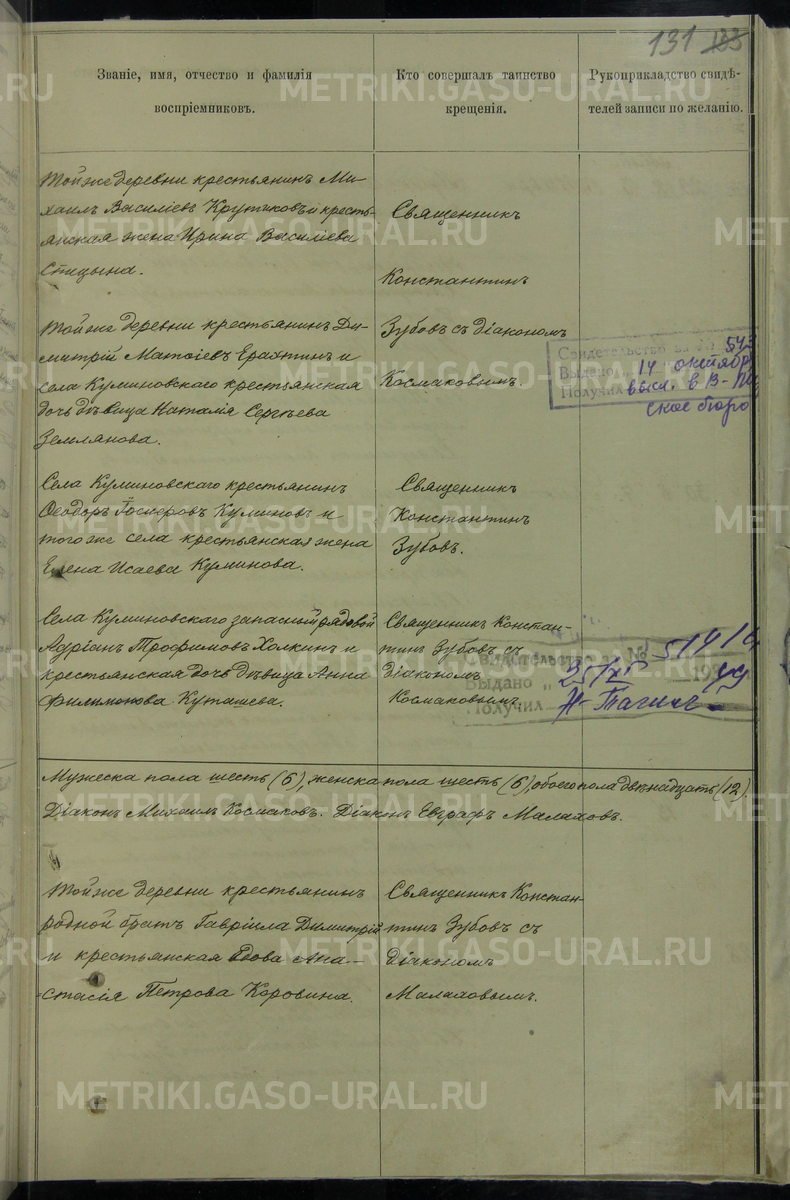 131 133
Званіе, имя, отчество и фамилія
воспріемниковъ.
Кто совершалъ таинство
крещенія.
Рукоприкладство свидѣ-
телей записи по желанію.
Той же деревни крестьянинъ Ми-
хаилъ Василіевъ Крутиковъ и кресть-
янская жена Ирина Василіева
Спицына.
Священникъ
Константинъ
Той же деревни крестьянинъ Ди-
митрій Матѳіевъ Ерахтинъ и
села Куминовскаго крестьянская
дочь дѣвица Наталія Сергѣева
Землянова.
Зубовъ съ діакономъ
Космаковымъ.
Свидетельство за №
Выдано „ 14 октябр
Получил высл. в В-
ское бюро
Села Куминовскаго крестьянинъ
Ѳеодоръ Куминовъ и
того же села крестьянская жена
Елена Исаева Куминова.
Священникъ
Константинъ
Зубовъ.
Села Куминовскаго запасный рядовой
Адріанъ Трофимовъ Холкинъ и
крестьянская дочь дѣвица Анна
Филимонова Куташева.
Священникъ Констан-
тинъ Зубовъ съ
діакономъ
Космаковымъ.
Свидетельство за №
Выдано „ 25/XI
Получил Н-Тагил
Мужеска пола шесть (6), женска пола шесть (6), обоего пола двѣнадцать (12).
Діаконъ Михаилъ Космаковъ. Діаконъ Евграфъ Малаховъ.
Той же деревни крестьянинъ
родной братъ Гавріила Димитрій
и крестьянская вдова Ана-
стасія Петрова Коровина.
Священникъ Констан-
тинъ Зубовъ съ
діакономъ
Малаховымъ.
METRIKI.GASO-URAL.RU